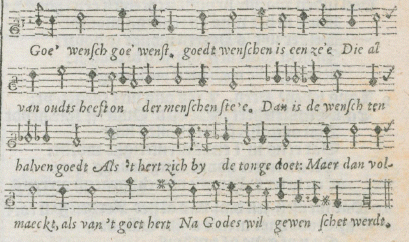 Goe' wensch goe' wenst. goedt wenschen is een ze'e Die al
van oudts heeft on der menschen ste'e. Dan is de wensch ten
halven goedt Als 't hert zich by de tonge doet: Maer dan vol-
maeckt, als van 't goet hert Na Godes wil gewen schet werdt.